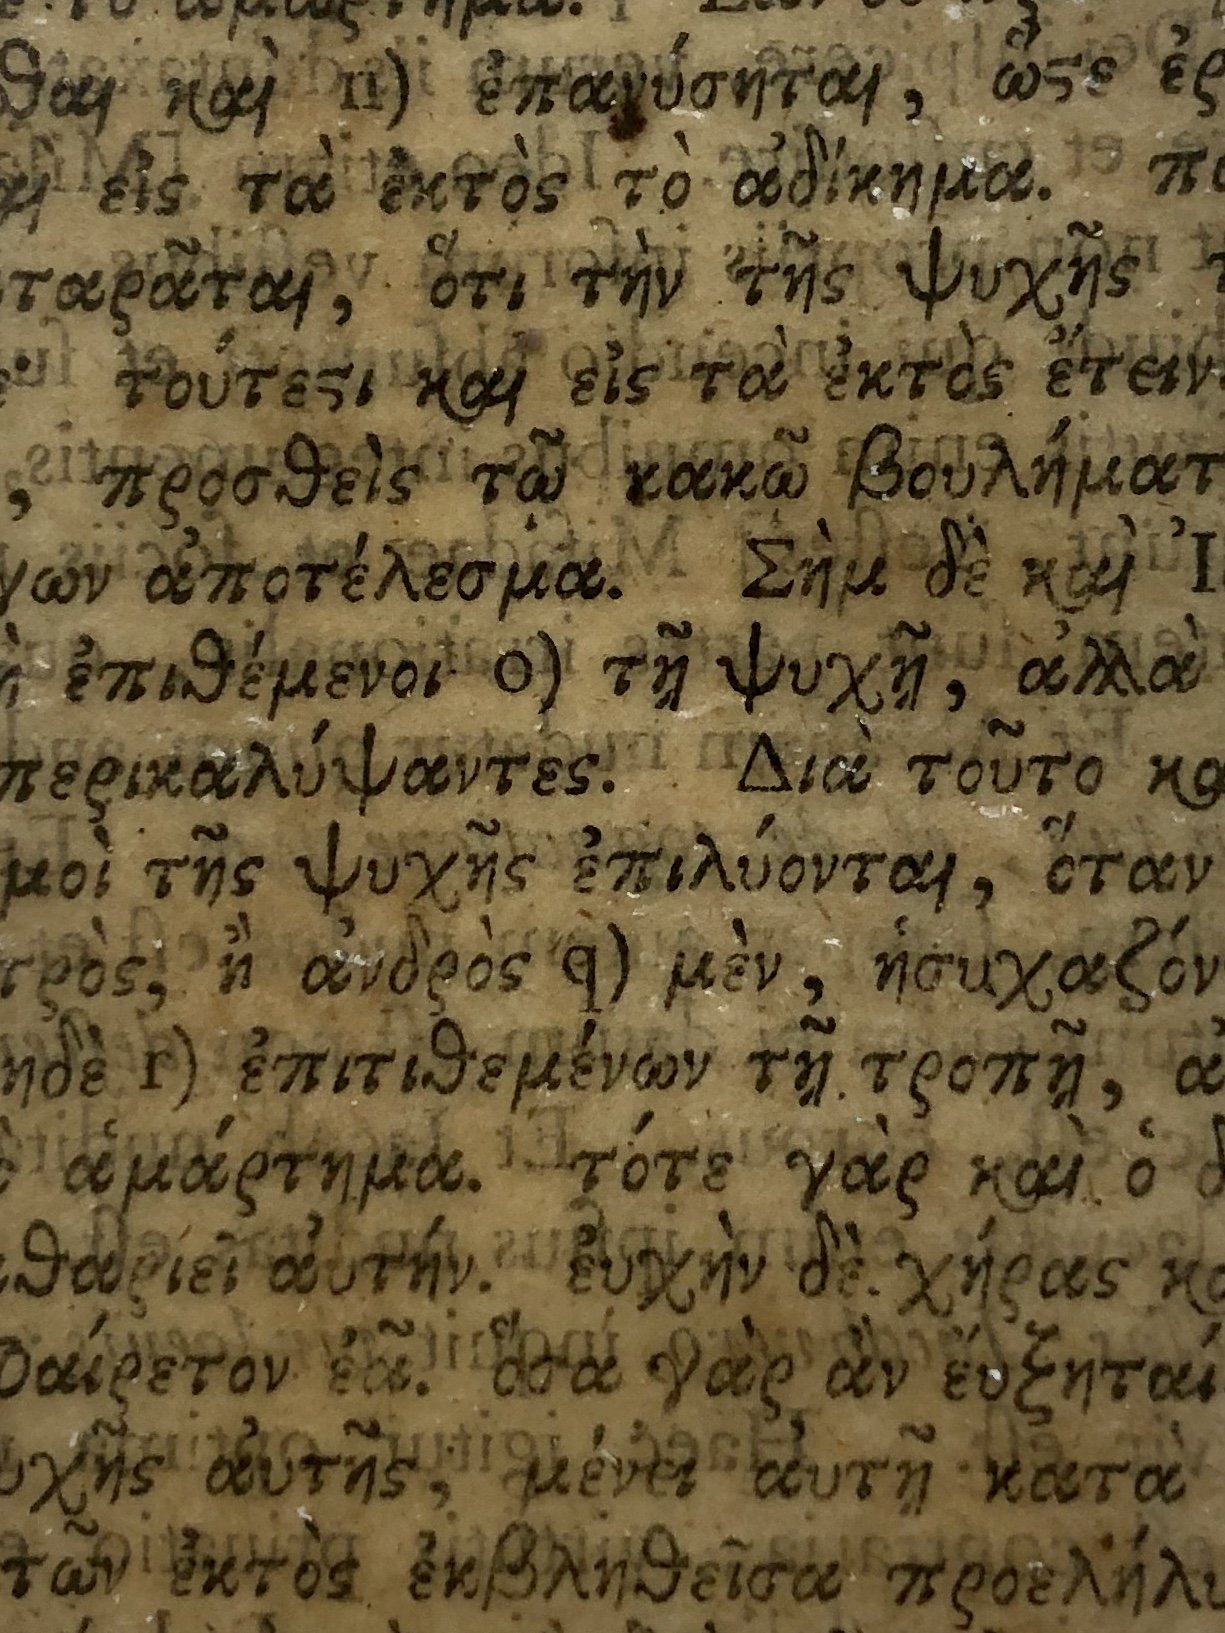 θαι καὶ n) ἐπανύσηται, ὥστε
εἰς τὰ ἐκτὸς τὸ ἀδίκημα.
ταρᾶται, ὅτι τὴν τῆς ψυχῆς
τούτεστι καὶ εἰς τὰ ἐκτὸς ἔτειν
, προσθεὶς τῶ κακῶ βουλήματ
γων ἀποτέλεσμα. Σὴμ δὲ καὶ Ἰ
ἐπιθέμενοι o) τῇ ψυχῇ, ἀλλὰ
περικαλύψαντες. Διὰ τοῦτο κα
μοὶ τῆς ψυχῆς ἐπιλύονται, ὅταν
τρὸς, ἢ ἀνδρὸς q) μὲν, ἡσυχαζόν
ηδὲ r) ἐπιτιθεμένων τῇ τροπῇ, ἀ
ἁμάρτημα. τότε γὰρ καὶ ὁ δ
θαριεῖ ἀυτήν. ἐυχὴν δὲ χήρας κα
θαίρετον ἐᾶ. ὅσα γὰρ ἂν ἔυξηται
υχῆς ἀυτῆς, μένει ἀυτῇ κατα
τῶν ἐκτὸς ἐκβληθεῖσα προελήλυ